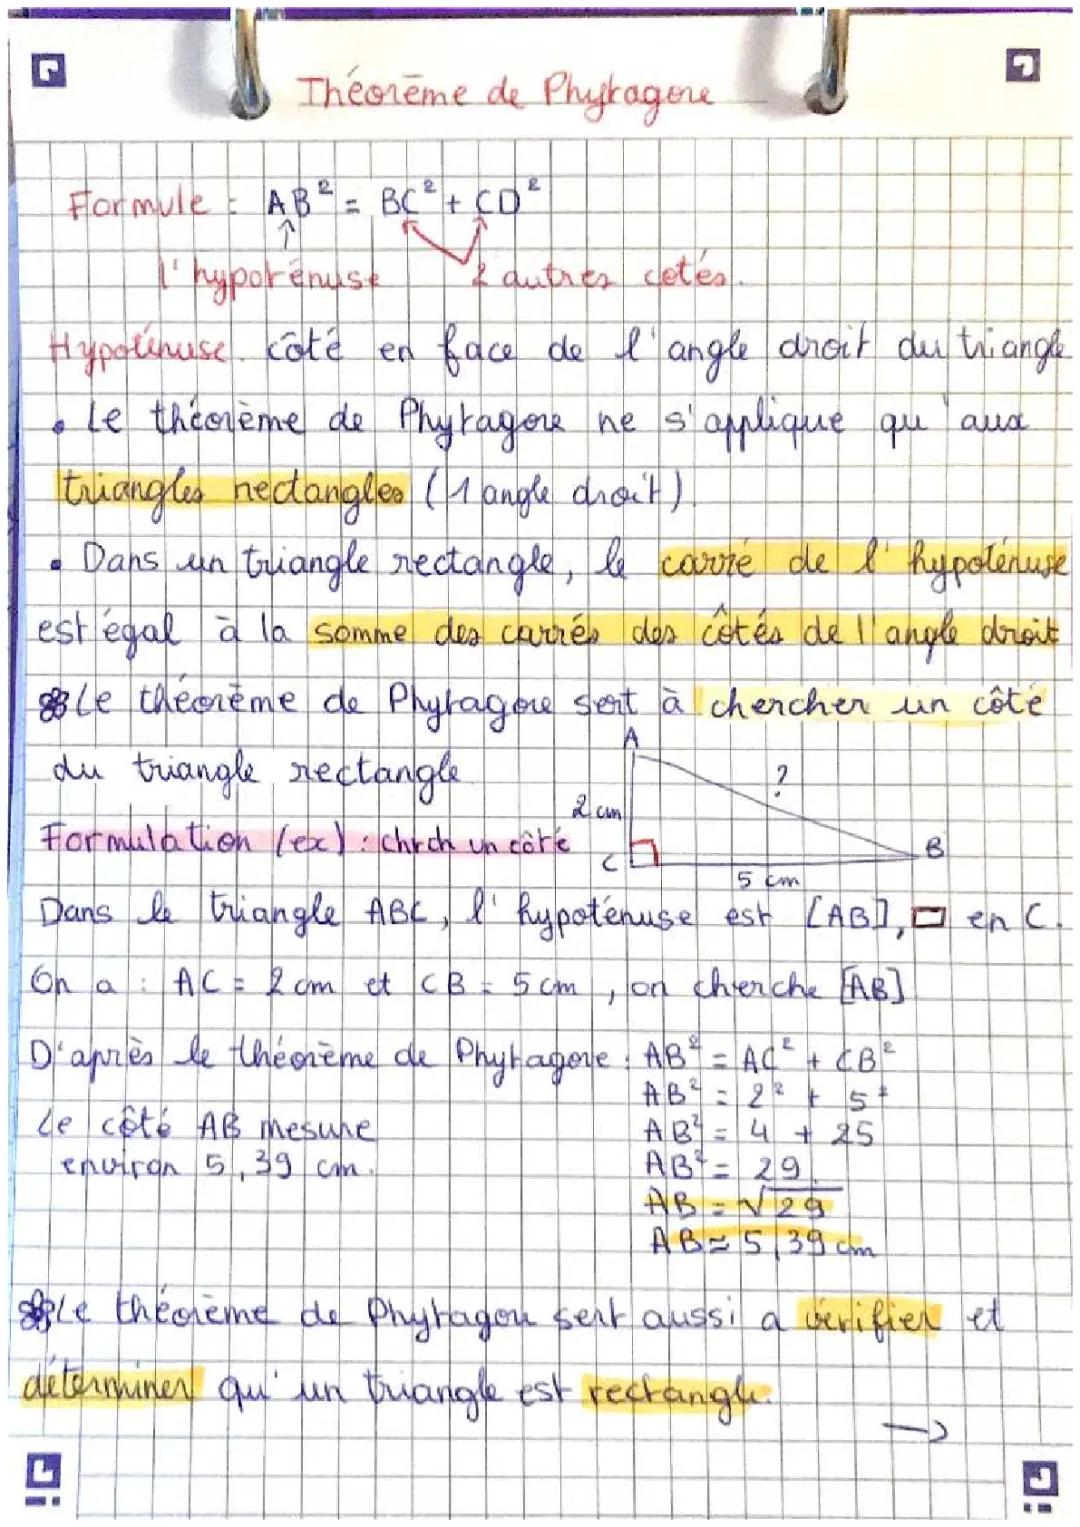 Théorème de Phytagore
Formule : AB² = BC² + CD²
l'hypoténuse 2 autres cotés.
Hypoténuse. côté en face de l'angle droit du triangle
• Le théorème de Phytagore ne s'applique qu'aux
triangles rectangles (1 angle droit)
• Dans un triangle rectangle, le carré de l'hypoténuse
est égal à la somme des carrés des côtés de l'angle droit
Le théorème de Phytagore sert à chercher un côté
du triangle rectangle
A
?
2 cm
Formulation (ex) : chrch un côté
C
B
5 cm
Dans le triangle ABC, l'hypoténuse est [AB], ▭ en C.
On a : AC = 2 cm et CB = 5 cm, on cherche [AB]
D'après le théorème de Phytagore : AB² = AC² + CB²
AB² = 2² + 5²
Le côté AB mesure AB² = 4 + 25
environ 5,39 cm. AB² = 29
AB = √29
AB ≈ 5,39 cm
Le théorème de Phytagore sert aussi a vérifier et
déterminer qu'un triangle est rectangle.
→